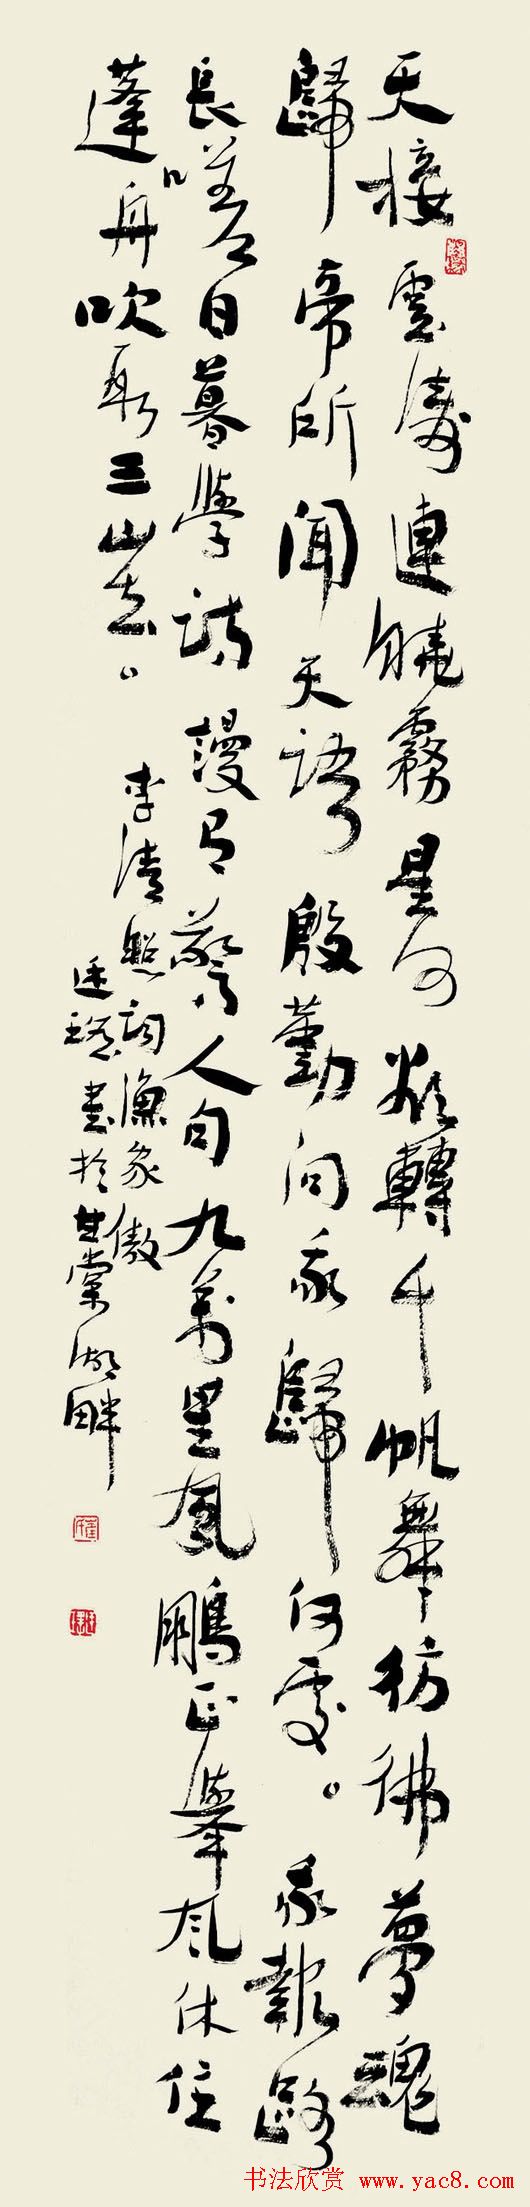 天接雲濤連曉霧星河欲轉千帆舞彷彿夢魂
歸帝所聞天語殷勤問我歸何處。我報路
長嗟日暮學詩謾有驚人句九萬里風鵬正舉風休住
蓬舟吹取三山去。
李清照詞漁家傲
書於甘棠湖畔
书法欣赏 www.yac8.com